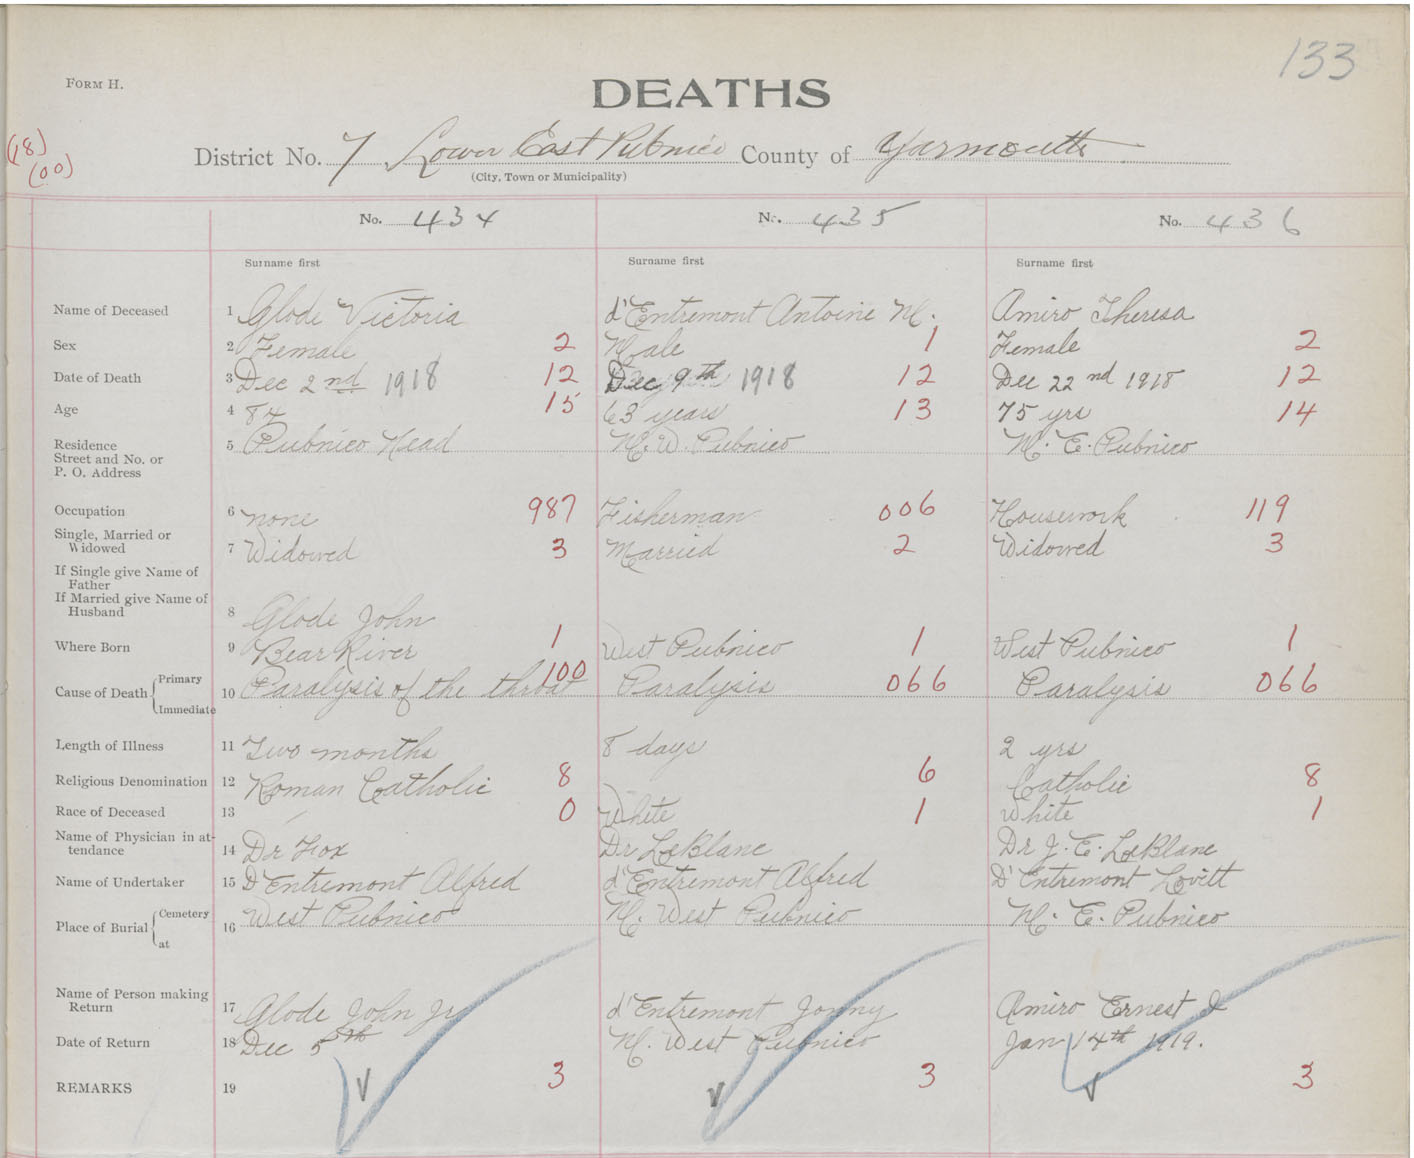 133
FORM H.
DEATHS
(18)
(00)
District No. 7 Lower East Pubnico County of Yarmouth
(City, Town or Municipality)
No. 434 No. 435 No. 436
Surname first Surname first Surname first
Name of Deceased 1 Glode Victoria d'Entremont Antoine M. Amiro Theresa
Sex 2 Female 2 Male 1 Female 2
Date of Death 3 Dec 2nd 1918 12 Dec 9th 1918 12 Dec 22nd 1918 12
Age 4 84 15 63 years 13 75 yrs 14
Residence
Street and No. or
P. O. Address 5 Pubnico Head M. W. Pubnico M. E. Pubnico
Occupation 6 none 987 Fisherman 006 Housework 119
Single, Married or
Widowed 7 Widowed 3 Married 2 Widowed 3
If Single give Name of
Father
If Married give Name of
Husband 8 Glode John
Where Born 9 Bear River 1 West Pubnico 1 West Pubnico 1
Cause of Death Primary
Immediate 10 Paralysis of the throat 100 Paralysis 066 Paralysis 066
Length of Illness 11 Two months 8 days 2 yrs
Religious Denomination 12 Roman Catholic 8 6 Catholic 8
Race of Deceased 13 0 White 1 White 1
Name of Physician in at-
tendance 14 Dr Fox Dr LeBlanc Dr J. E. LeBlanc
Name of Undertaker 15 D'Entremont Alfred d'Entremont Alfred D'Entremont Lovitt
Place of Burial Cemetery
at 16 West Pubnico M. West Pubnico M. E. Pubnico
Name of Person making
Return 17 Glode John Jr d'Entremont Jonny Amiro Ernest I
Date of Return 18 Dec 5th M. West Pubnico Jan 14th 1919.
REMARKS 19 3 3 3